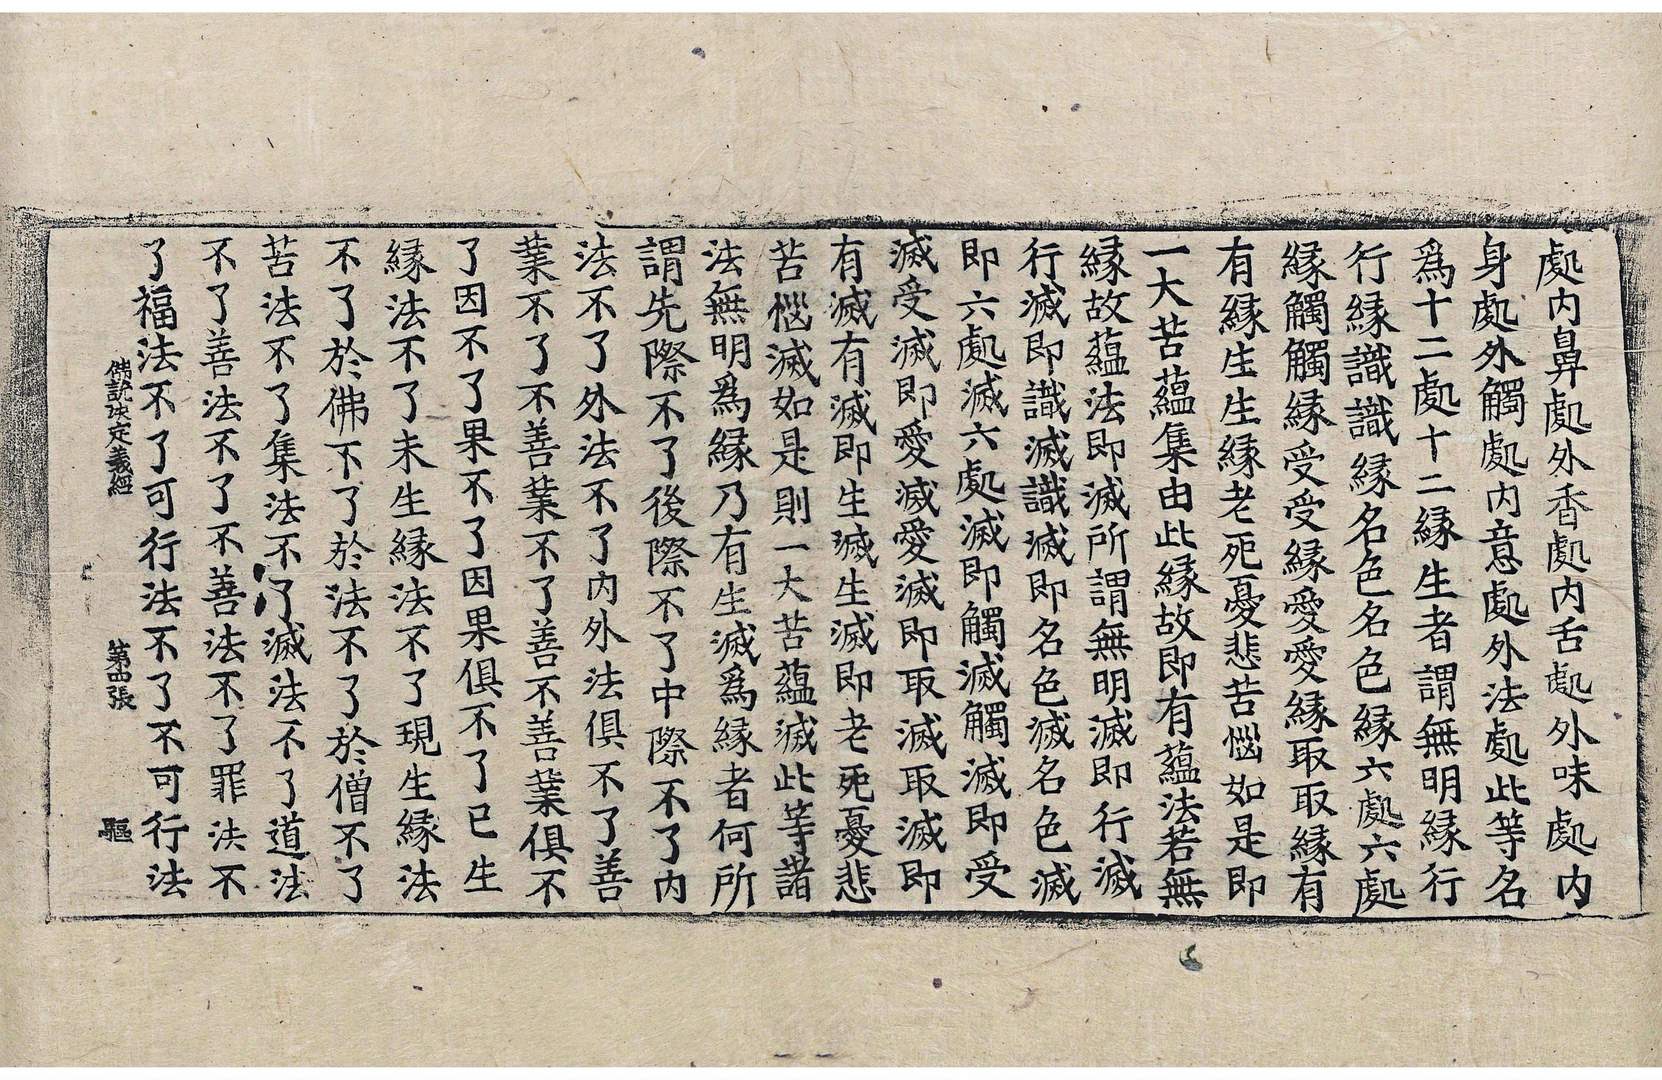 處内鼻處外香處内舌處外味處内
身處外觸處内意處外法處此等名
爲十二處十二緣生者謂無明緣行
行緣識識緣名色名色緣六處六處
緣觸觸緣受受緣愛愛緣取取緣有
有緣生生緣老死憂悲苦惱如是即
一大苦蘊集由此緣故即有蘊法若無
緣故蘊法即滅所謂無明滅即行滅
行滅即識滅識滅即名色滅名色滅
即六處滅六處滅即觸滅觸滅即受
滅受滅即愛滅愛滅即取滅取滅即
有滅有滅即生滅生滅即老死憂悲
苦惱滅如是則一大苦蘊滅此等諸
法無明爲緣乃有生滅爲緣者何所
謂先際不了後際不了中際不了内
法不了外法不了内外法俱不了善
業不了不善業不了善不善業俱不
了因不了果不了因果俱不了已生
緣法不了未生緣法不了現生緣法
不了於佛不了於法不了於僧不了
苦法不了集法不了滅法不了道法
不了善法不了不善法不了罪法不
了福法不了可行法不了不可行法
佛說決定義經 第四張 驅